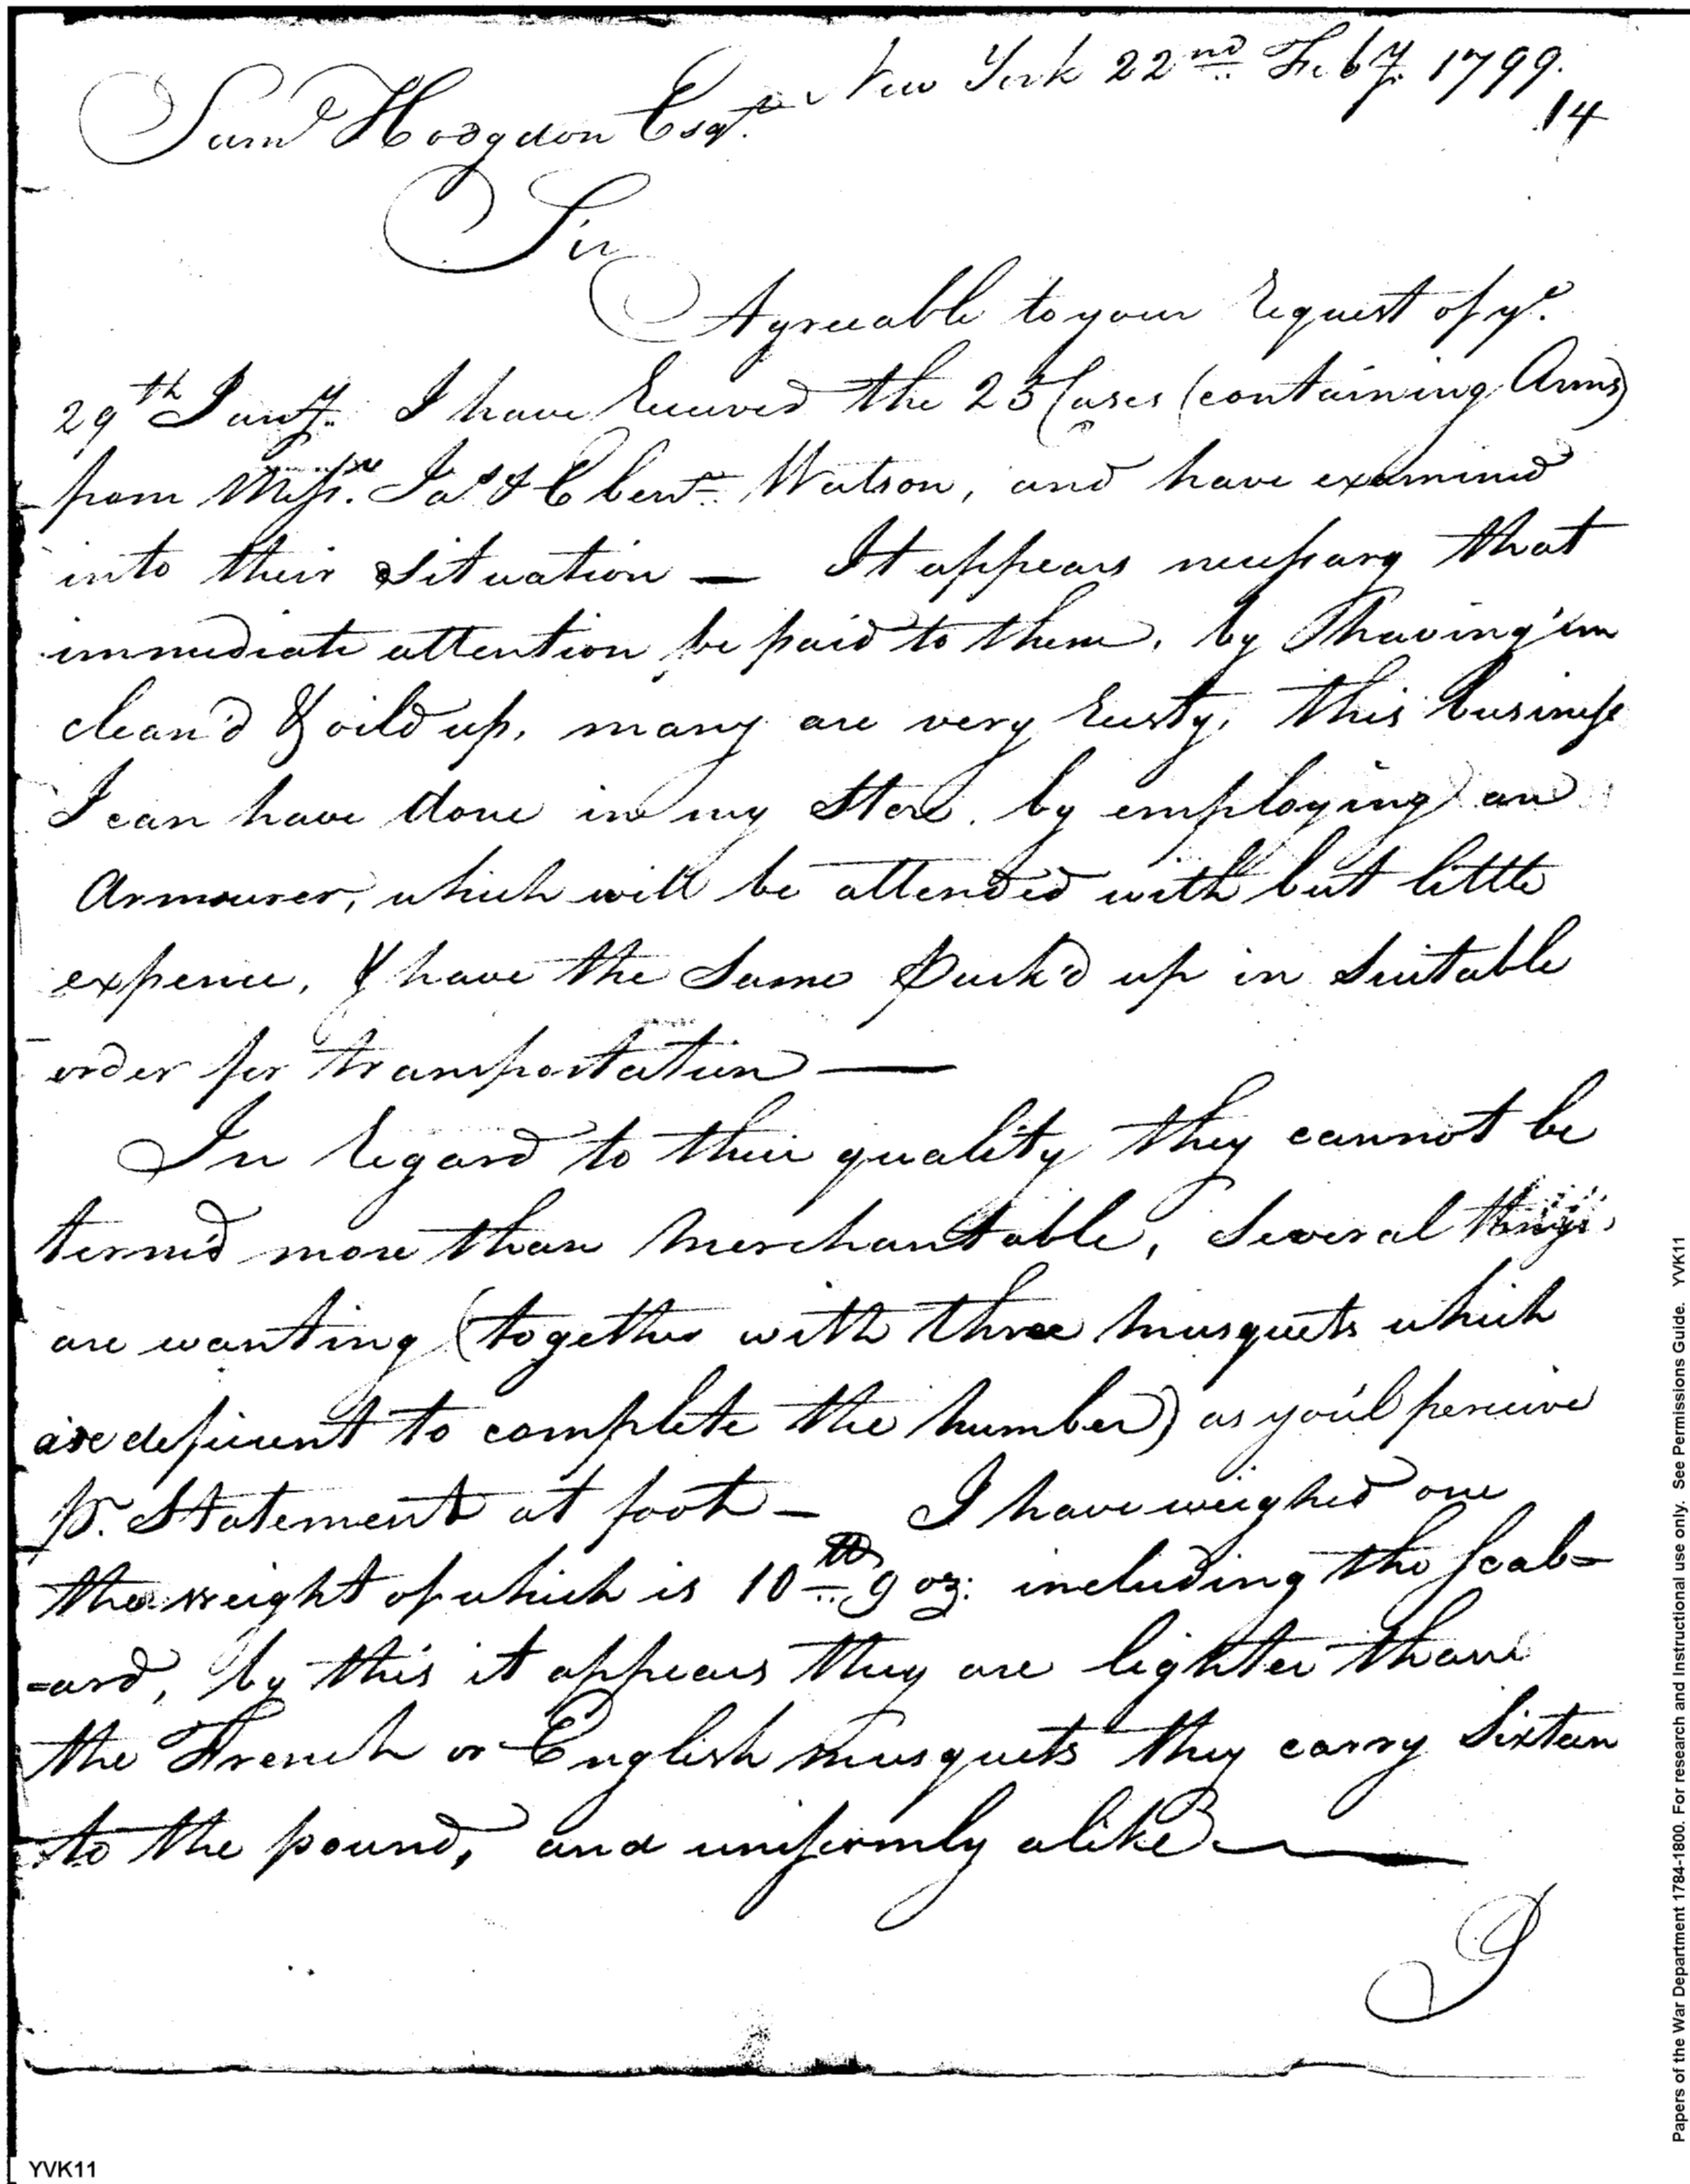 New York 22nd Feby. 1799.
14
Saml Hodgdon Esqr.
Sir
Agreeable to your request of ye.
29th Jany. I have received the 25 Cases (containing Arms)
from Messrs. Jas & Ebenr. Watson, and have examined
into their situation — It appears necessary that
immediate attention be paid to them, by having 'em
clean'd & oild up, many are very rusty, this business
I can have done in my Store, by employing an
Armourer, which will be attended with but little
expence, & have the same pack'd up in suitable
order for transportation —
In regard to their quality they cannot be
term'd more than merchantable, several things
are wanting (together with three musquets which
are deficient to complete the number) as you'l perceive
pr. Statement at foot — I have weighed one
the weight of which is 10 lb 9 oz: including the scab=
=ard, by this it appears they are lighter than
the French or English musquets they carry sixteen
to the pound, and uniformly alike —
Papers of the War Department 1784-1800. For research and Instructional use only. See Permissions Guide. YVK11
YVK11